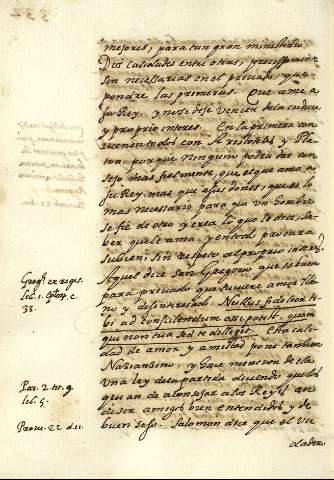 532
mejores, para tan gran ministerio.
Dos calidades entre otras, precisamente
son necessarias en el privado, que
pondre las primeras. Que ame a
su Rey, y no se dexe vencer de la cudicia
y proprio interes. En la primera con
vienen todos con Aristoteles y Pla
ton: porque ninguno podra dar con
sejo mas fielmente, que el que ama a
su Rey, mas que a sus dones, que es lo
mas necessario para que un hombre
se fie de otro y crea lo que le dice, sa
ber que le ama, y en todo procura
su bien, sin respeto al proprio interes.
Aquel dice San Gregorio que es bueno
para privado que tuviere amor lla
no y desinteresado. Nullus fidelior ti
bi ad consulendum esse potest, quam
qui non tua sed te diliget. Esta cali
dad de amor y amistad pone tambien
Nazianzeno, y hace mencion de ella
una ley de la partida diciendo que los
que an de aconsejar a los Reyes an
de ser amigos bien entendidos y de
buen seso. Salomon dice que el ver
dadero
Greg. ex regis.
lib. 1. Epist. c.
33.
Par. 2. tit. 9
lib. 5.
Prover. 22 d. 11.